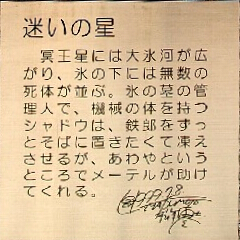 迷いの星
冥王星には大氷河が広
がり、氷の下には無数の
死体が並ぶ。氷の墓の管
理人で、機械の体を持つ
シャドウは、鉄郎をずっ
とそばに置きたくて凍え
させるが、あわやという
ところでメーテルが助け
てくれる。